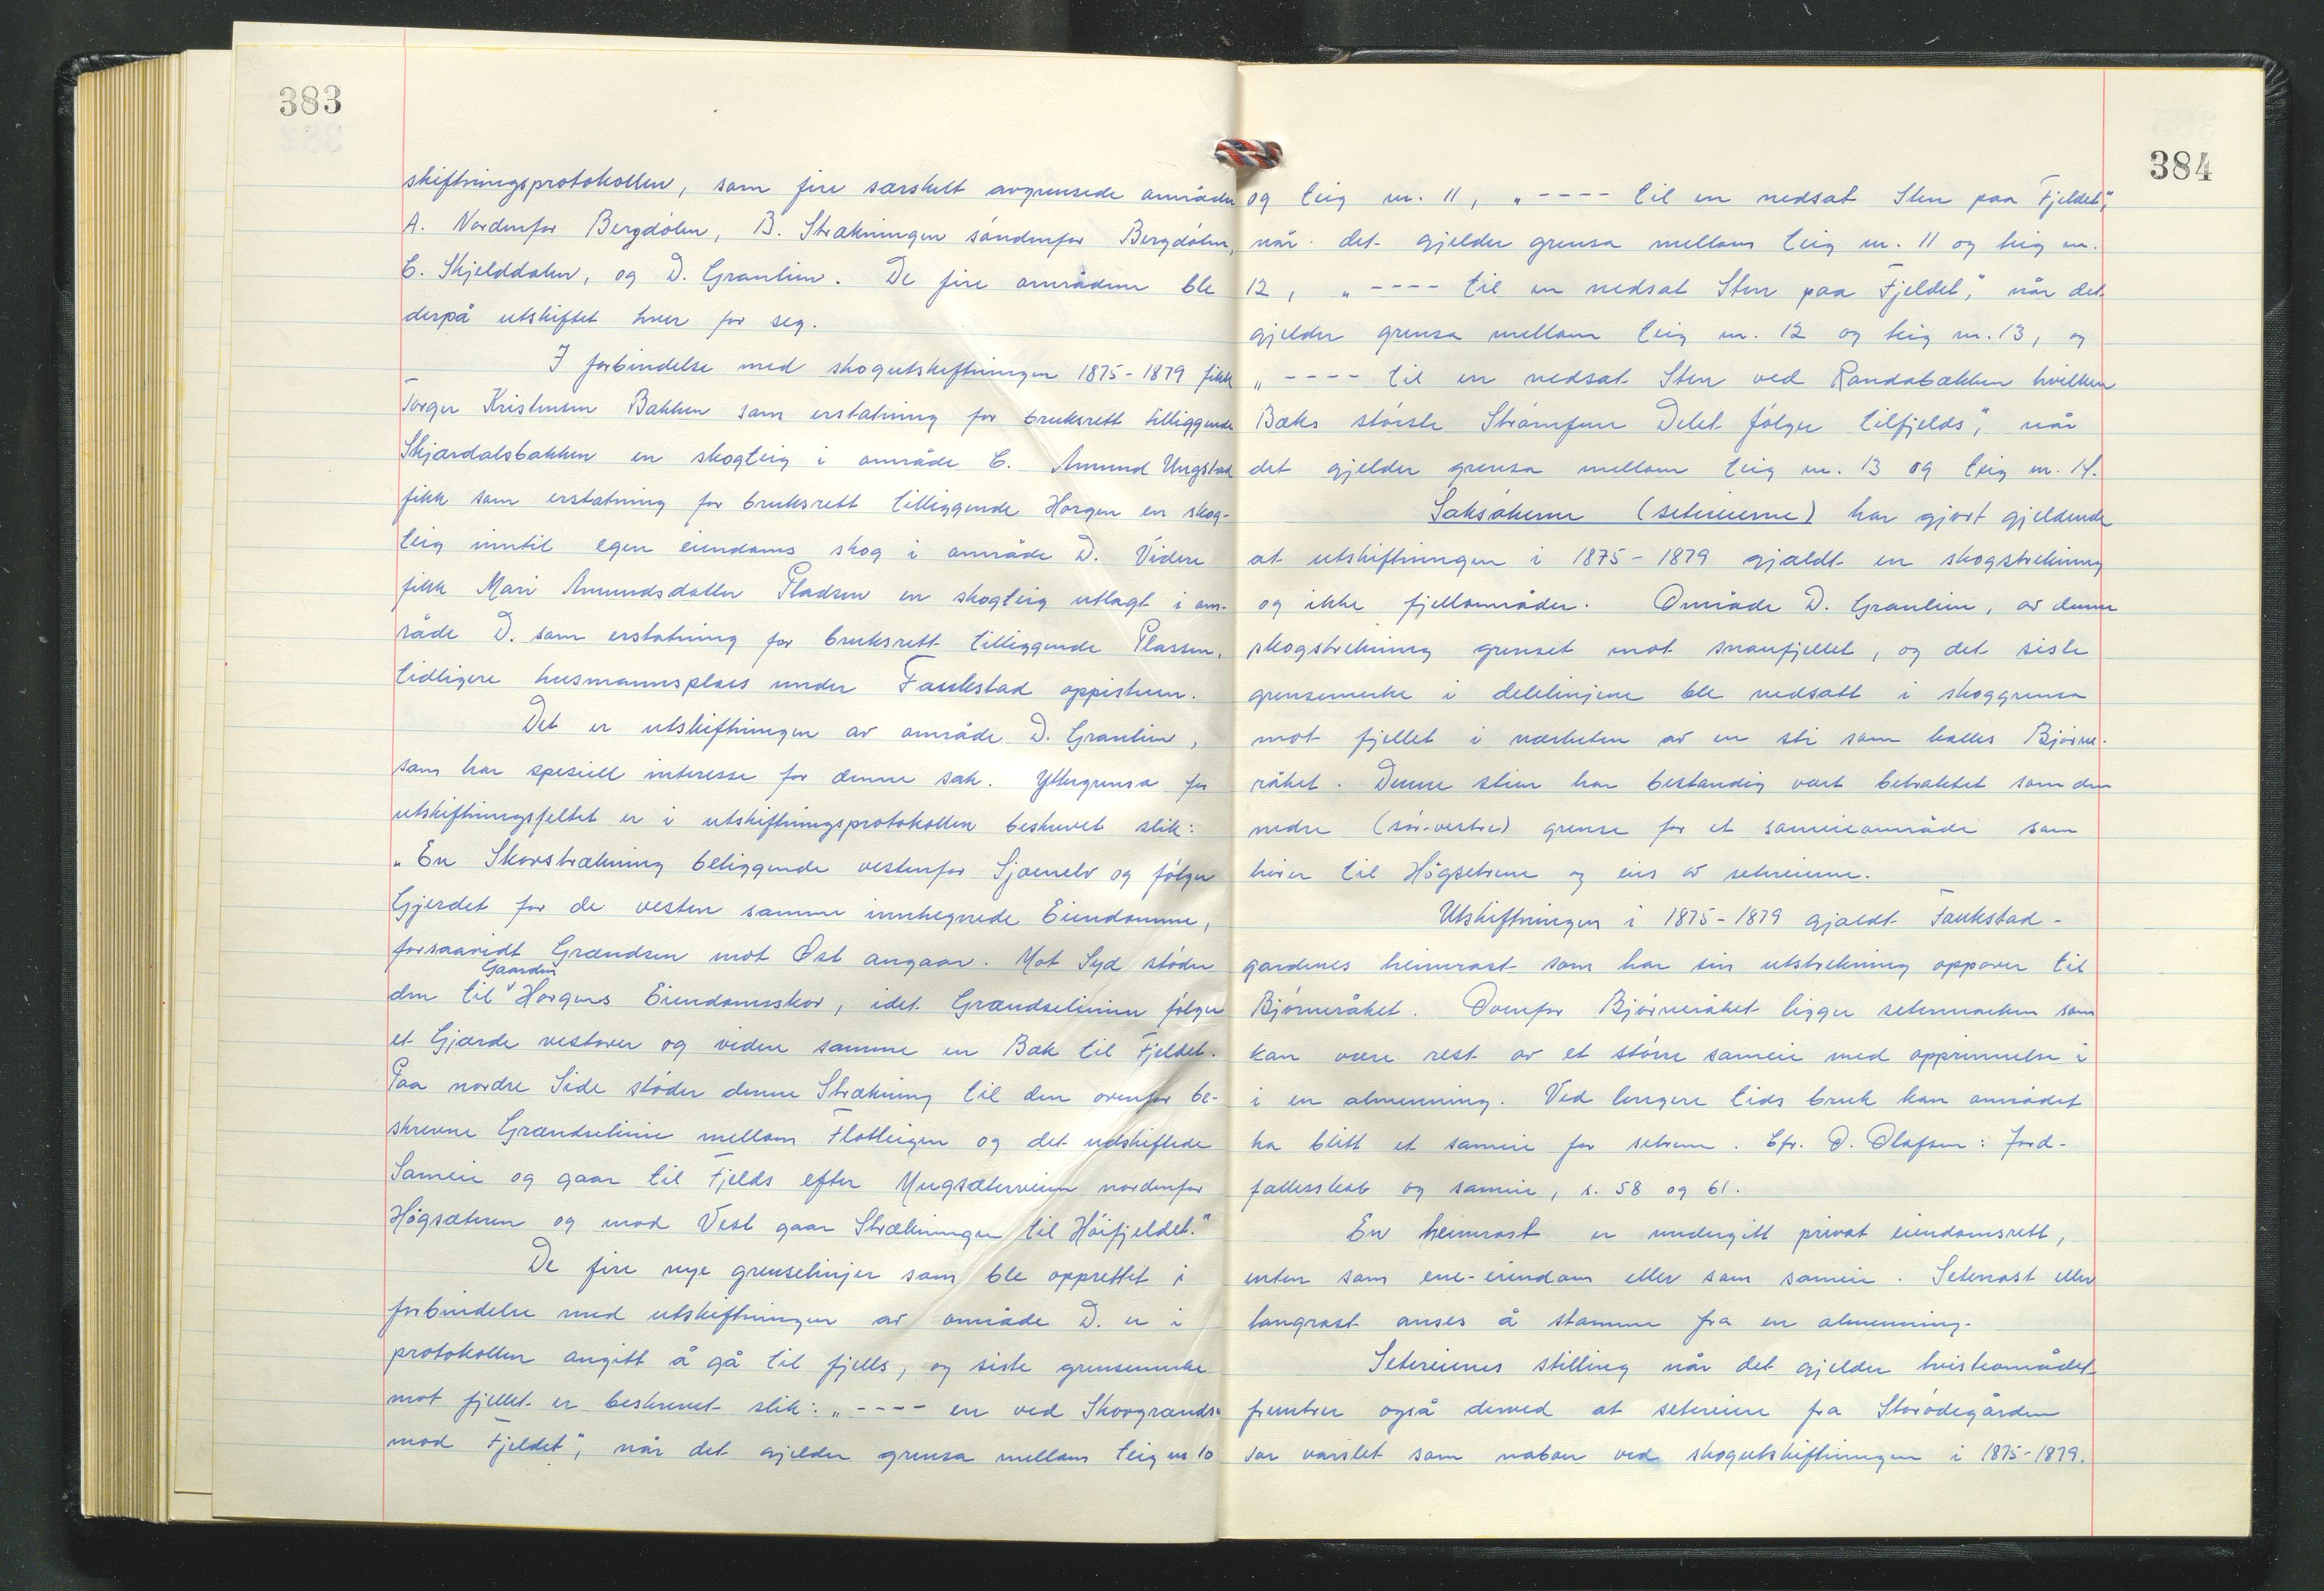 383
skiftningsprotokollen, som fire særskelt avgrensede områder
A. Nordenfor Bergdølen, B. Strækningen søndenfor Bergdølen,
C. Skjelddalen, og D. Granlien. De fire områdene ble
derpå utskiftet hver for seg.
I forbindelse med skogutskiftningen 1875-1879 fikk
Torger Kristensen Bakken som erstatning for bruksrett tilliggende
Skjærdalsbakken en skogteig i område C. Amund Ungstad
fikk som erstatning for bruksrett tilliggende Horgen en skog-
teig inntil egen eiendoms skog i område D. Videre
fikk Mari Amundsdatter Pladsen en skogteig utlagt i om-
råde D. som erstatning for bruksrett tilliggende Plassen,
tidligere husmannsplass under Faukstad oppistuen.
Det er utskiftningen av område D. Granlien,
som har spesiell interesse for denne sak. Yttergrensa for
utskiftningsfeltet er i utskiftningsprotokollen beskrevet slik:
„En Skovstrækning beliggende vestenfor Sjoenelv og følger
Gjerdet for de vesten samme innhegnede Eiendomme,
forsaavidt Grændsen mot Øst angaar. Mot Syd støder
den til Gaarden Horgens Eiendomsskov, idet Grændselinien følger
et Gjærde vestover og videre samme en Bæk til Fjeldet.
Paa nordre Side støder denne Strækning til den ovenfor be-
skrevne Grændselinie mellom Flotteigen og det udskiftede
Sameie og gaar til Fjelds efter Mugsæterveien nordenfor
Høgsæteren og mod Vest gaar Strækningen til Höifjeldet."
De fire nye grenselinjer som ble opprettet i
forbindelse med utskiftningen av område D. er i
protokollen angitt å gå til fjells, og siste grensemerke
mot fjellet er beskrevet slik: „---- en ved Skovgrændsen
mod Fjeldet", når det gjelder grensa mellom teig nr 10
384
og teig nr. 11, „---- til en nedsat Sten paa Fjeldet",
når det gjelder grensa mellom teig nr. 11 og teig nr.
12, „---- til en nedsat Sten paa Fjeldet", når det
gjelder grensa mellom teig nr. 12 og teig nr. 13, og
„---- til en nedsat Sten ved Randabækken hvilken
Bæks største Strømfure Delet følger tilfjelds", når
det gjelder grensa mellom teig nr. 13 og teig nr. 14.
Saksøkerne (setereierne) har gjort gjeldende
at utskiftningen i 1875-1879 gjaldt en skogstrekning
og ikke fjellområder. Område D. Granlien, av denne
skogstrekning grenset mot snaufjellet, og det siste
grensemerke i delelinjene ble nedsatt i skoggrensa
mot fjellet i nærheten av en sti som kalles Bjørne-
råket. Denne stien har bestandig vært betraktet som den
nedre (sør-vestre) grense for et sameieområde som
hører til Høgsetrene og eies av setereierne.
Utskiftningen i 1875-1879 gjaldt Faukstad-
gardenes heimrast som har sin utstrekning oppover til
Bjørneråket. Ovenfor Bjørneråket ligger setermarken som
kan være rest av et større sameie med opprinnelse i
i en almenning. Ved lengere tids bruk kan området
ha blitt et sameie for setrene. Cfr. O. Olafsen: Jord-
fællesskab og sameie, s. 58 og 61.
En heimrast er undergitt privat eiendomsrett,
enten som ene-eiendom eller som sameie. Seterrast eller
langrast anses å stamme fra en almenning.
Setereiernes stilling når det gjelder tvisteområdet
fremtrer også derved at setereiere fra Storødegården
var varslet som naboer ved skogutskiftningen i 1875-1879.